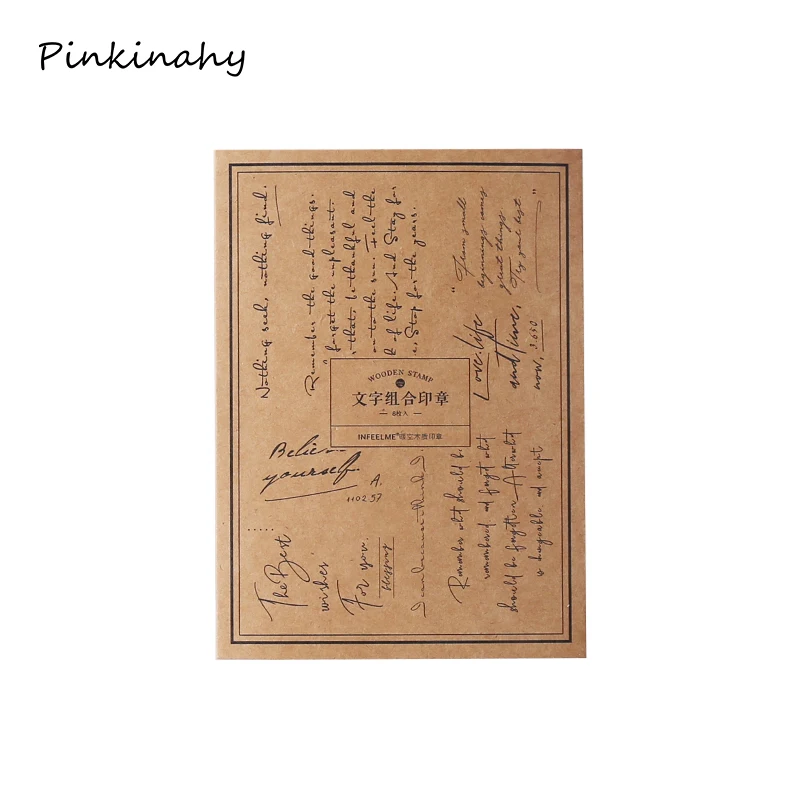 Pinkinahy
Nothing seek, nothing find.
Remember the good things.
forget the unpleasant.
that. be thankful and
on to the sun. Feel the
t of life. And Stay for
e. Stop for the years.
"From small
beginnings comes
great things
Try your best"
Love.life
and Time,
now, 3.030
WOODEN STAMP
文字组合印章
8枚入
INFEELME®
木质印章
Believ
yourself.
A.
1102.57
.....
The Best
wishes
For you.
blessing
Remember what should be
remembered and forget what
should be forgotten. Alter what
is changeable and accept